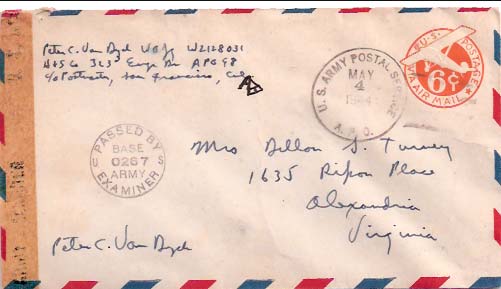 Peter C. Van Dyck WOJG W2128031
H&S Co 323d Engr Bn APO 98
c/o Postmaster, San Francisco, Cal
U.S. ARMY POSTAL SERVICE
MAY
4
A.P.O.
U.S. POSTAGE
6¢
VIA AIR MAIL
PASSED BY
U S
BASE
0267
ARMY
EXAMINER
Mrs Dillon S. Turney
1635 Ripon Place
Alexandria
Virginia
Peter C. Van Dyck